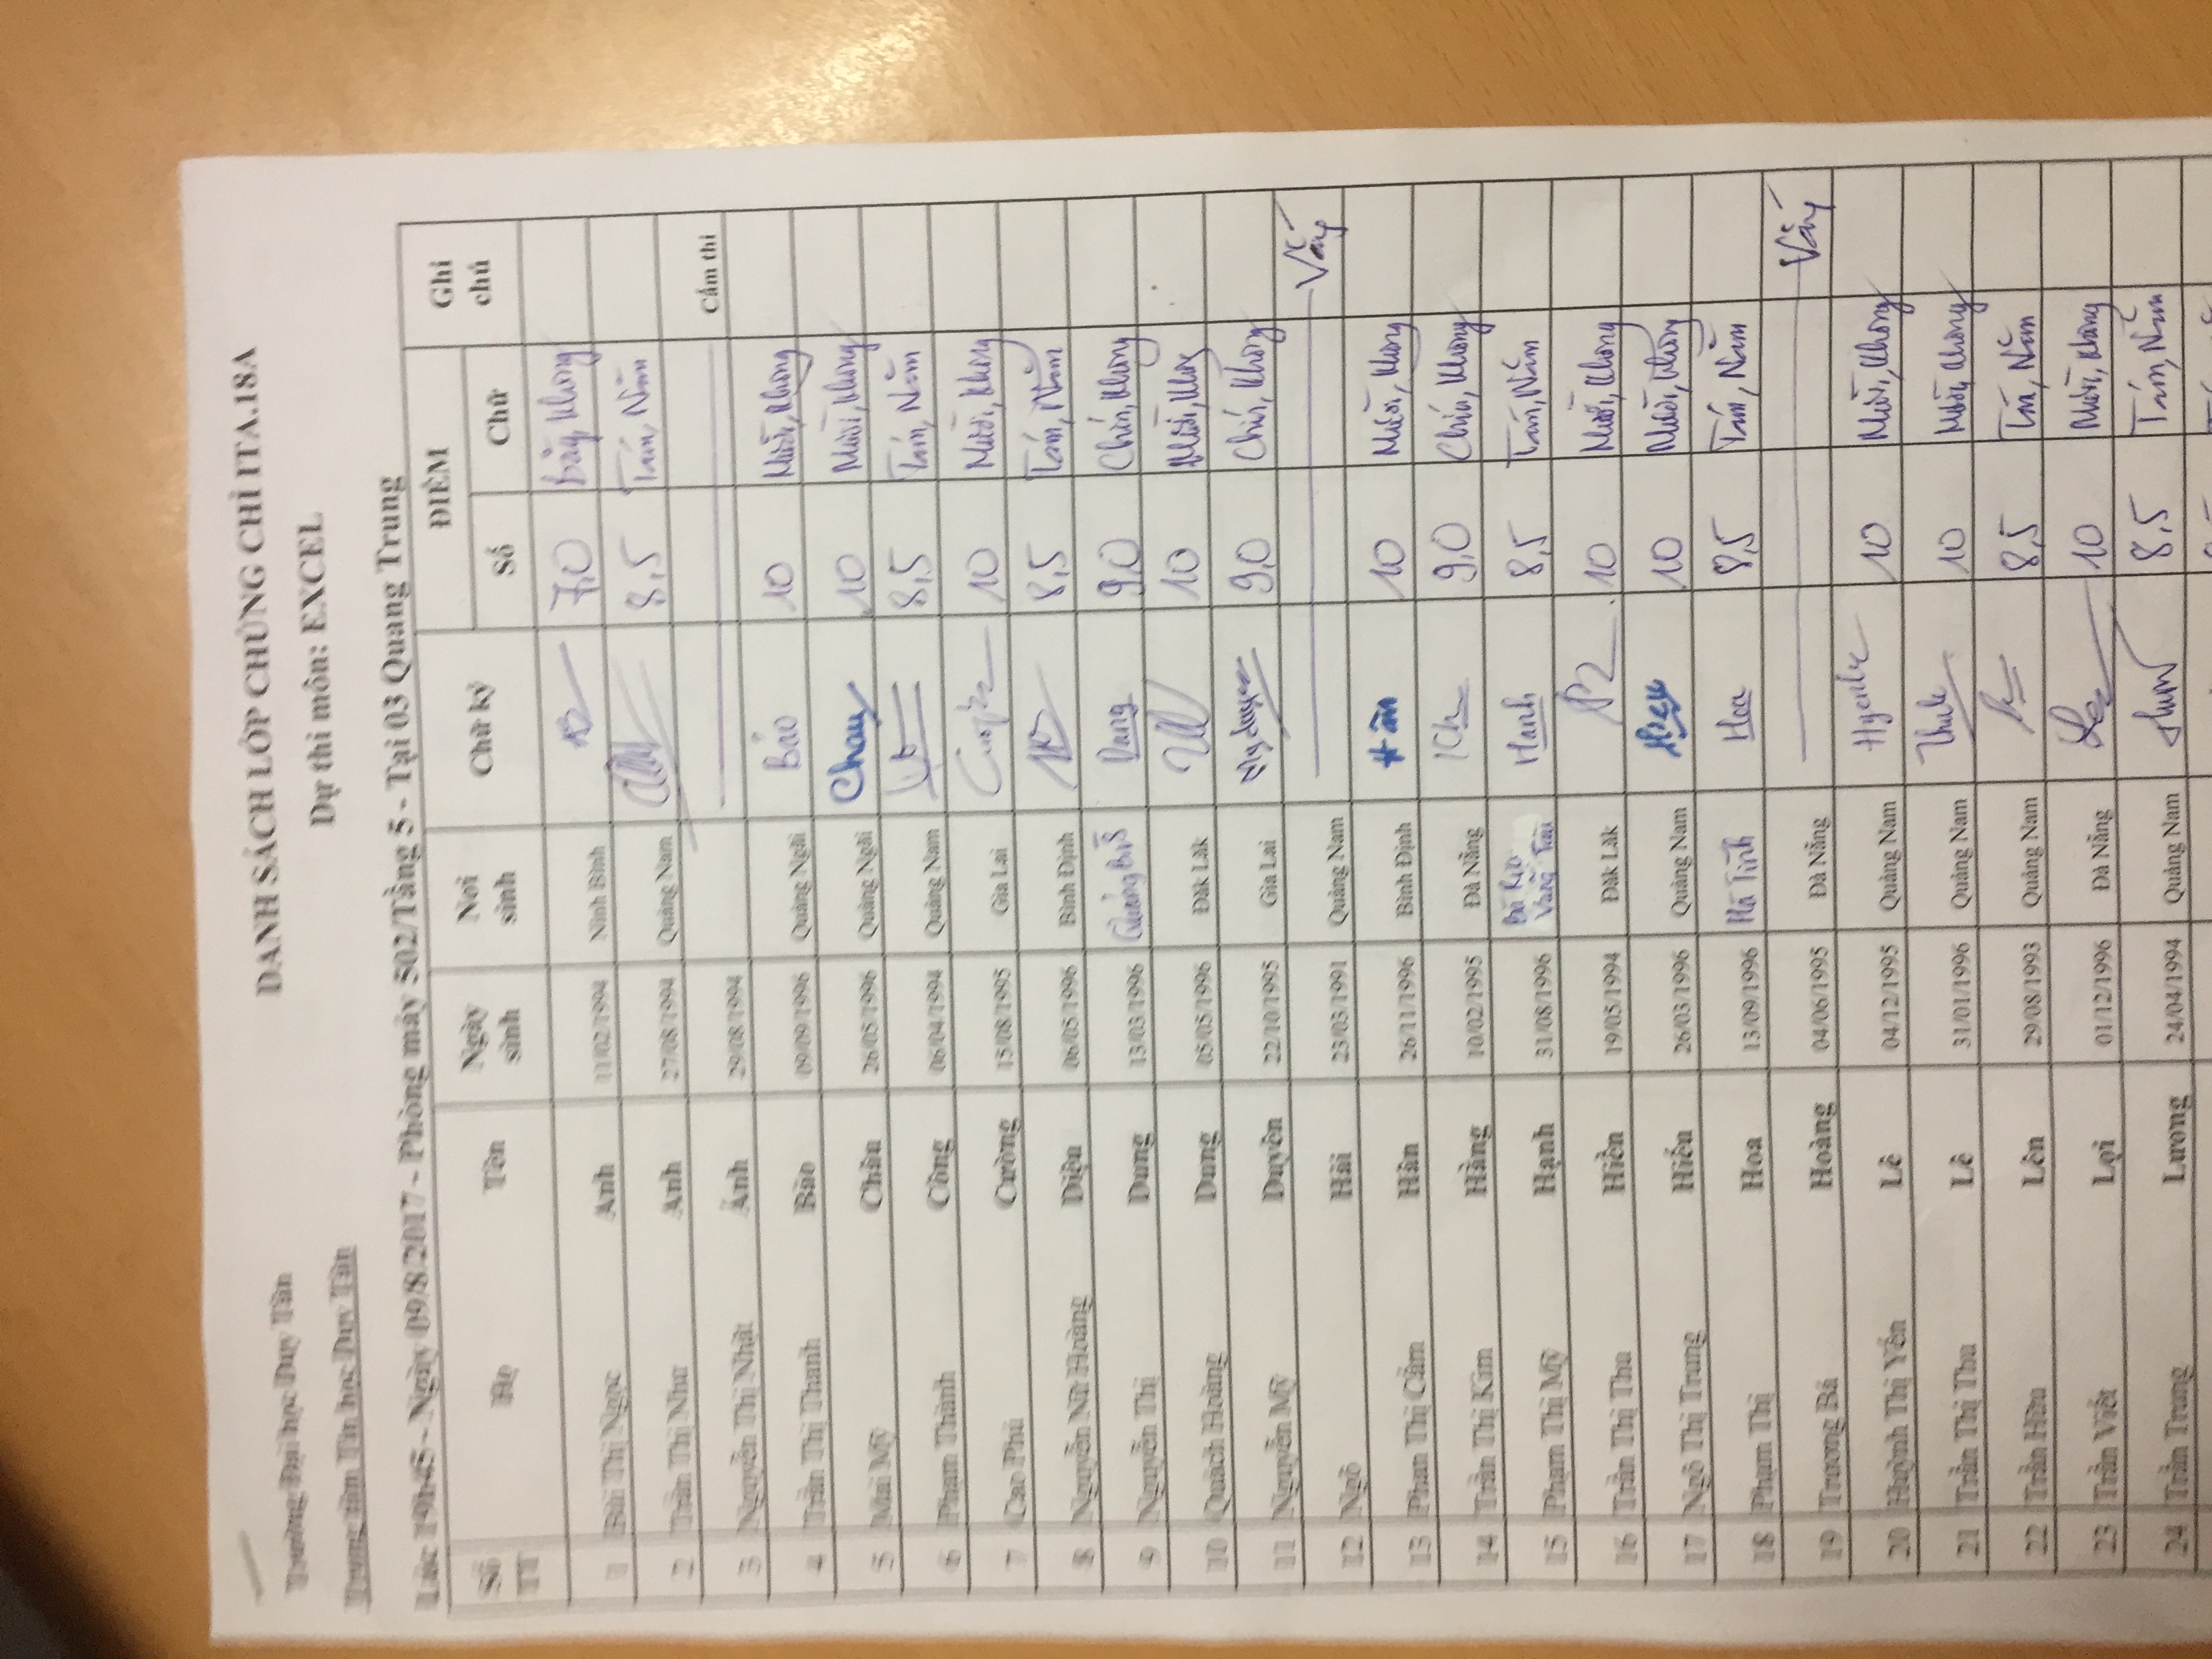 Trường Đại học Duy Tân
Trung tâm Tin học Duy Tân
DANH SÁCH LỚP CHỨNG CHỈ ITA.18A
Dự thi môn: EXCEL
Lúc 19h45 - Ngày 09/8/2017 - Phòng máy 502/Tầng 5 - Tại 03 Quang Trung
Số TT Họ Tên Ngày sinh Nơi sinh Chữ ký ĐIỂM Số Chữ Ghi chú
1 Bùi Thị Ngọc Anh 11/02/1994 Ninh Bình 7,0 Bảy, Không
2 Trần Thị Như Anh 27/08/1994 Quảng Nam 8,5 Tám, Năm
3 Nguyễn Thị Nhật Ánh 29/08/1994 Cấm thi
4 Trần Thị Thanh Bảo 09/09/1996 Quảng Ngãi Bảo 10 Mười, Không
5 Mai Mỹ Châu 26/05/1996 Quảng Ngãi Chau 10 Mười, Không
6 Phạm Thành Công 06/04/1994 Quảng Nam 8,5 Tám, Năm
7 Cao Phú Cường 15/08/1995 Gia Lai 10 Mười, Không
8 Nguyễn Nữ Hoàng Diệu 06/05/1996 Bình Định 8,5 Tám, Năm
9 Nguyễn Thị Dung 13/03/1996 Quảng Bình Dung 9,0 Chín, Không
10 Quách Hoàng Dung 05/05/1996 Đăk Lăk 10 Mười, Không
11 Nguyễn Mỹ Duyên 22/10/1995 Gia Lai Mỹ duyên 9,0 Chín, Không
12 Ngô Hải 23/03/1991 Quảng Nam Vắng
13 Phan Thị Cẩm Hân 26/11/1996 Bình Định Hân 10 Mười, Không
14 Trần Thị Kim Hằng 10/02/1995 Đà Nẵng 9,0 Chín, Không
15 Phạm Thị Mỹ Hạnh 31/08/1996 Bà Rịa Vũng Tàu Hanh 8,5 Tám, Năm
16 Trần Thị Thu Hiền 19/05/1994 Đăk Lăk 10 Mười, Không
17 Ngô Thị Trung Hiếu 26/03/1996 Quảng Nam Hieu 10 Mười, Không
18 Phạm Thị Hoa 13/09/1996 Hà Tĩnh Hoa 8,5 Tám, Năm
19 Trương Bá Hoàng 04/06/1995 Đà Nẵng Vắng
20 Huỳnh Thị Yến Lê 04/12/1995 Quảng Nam 10 Mười, Không
21 Trần Thị Thu Lê 31/01/1996 Quảng Nam 10 Mười, Không
22 Trần Hữu Lên 29/08/1993 Quảng Nam 8,5 Tám, Năm
23 Trần Viết Lợi 01/12/1996 Đà Nẵng 10 Mười, Không
24 Trần Trung Lương 24/04/1994 Quảng Nam 8,5 Tám, Năm